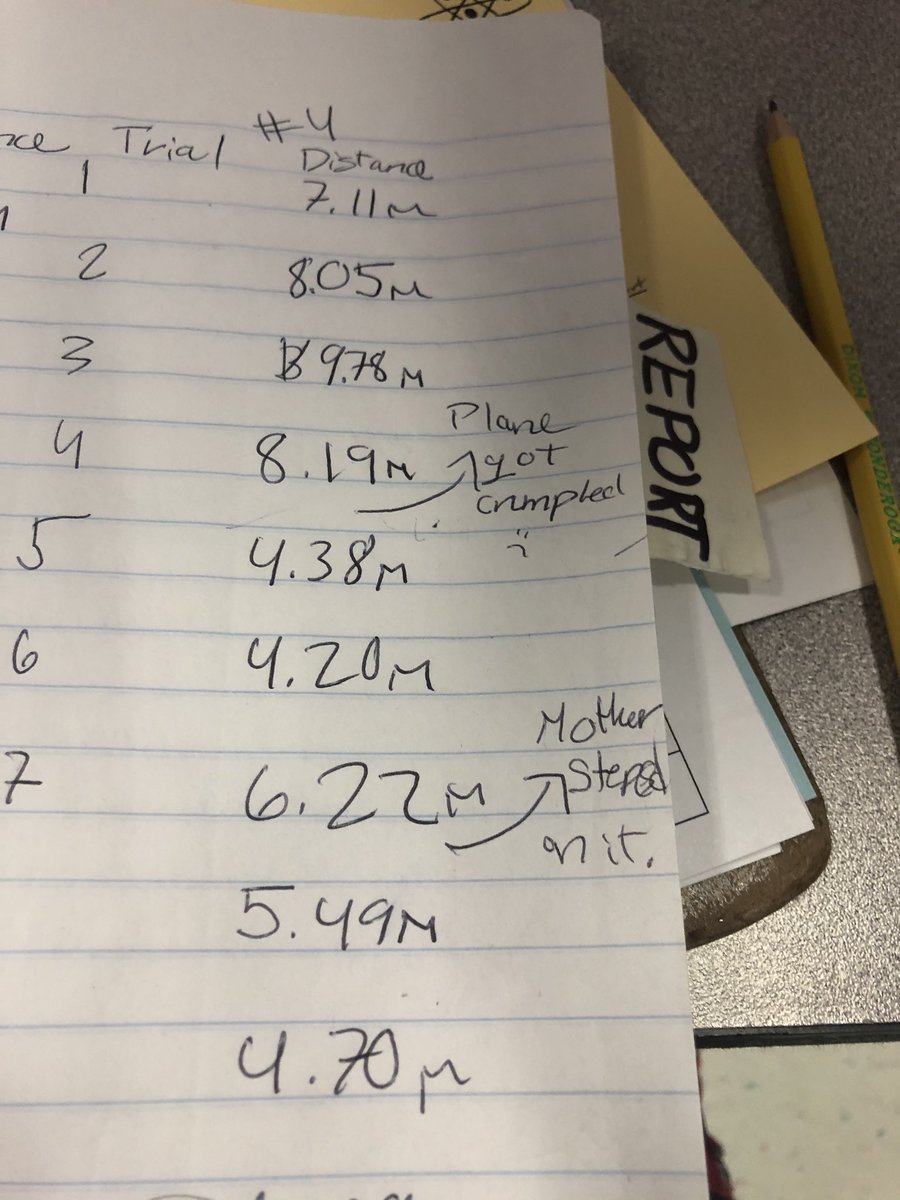 Trial #4
1 Distance
7.11m
2 8.05m
3 9.78m
4 8.19m
Plane
got
crumpled
5 4.38m
6 4.20m
7 6.22m
Mother
Steped
on it.
5.49m
4.70m
REPORT
DIXON